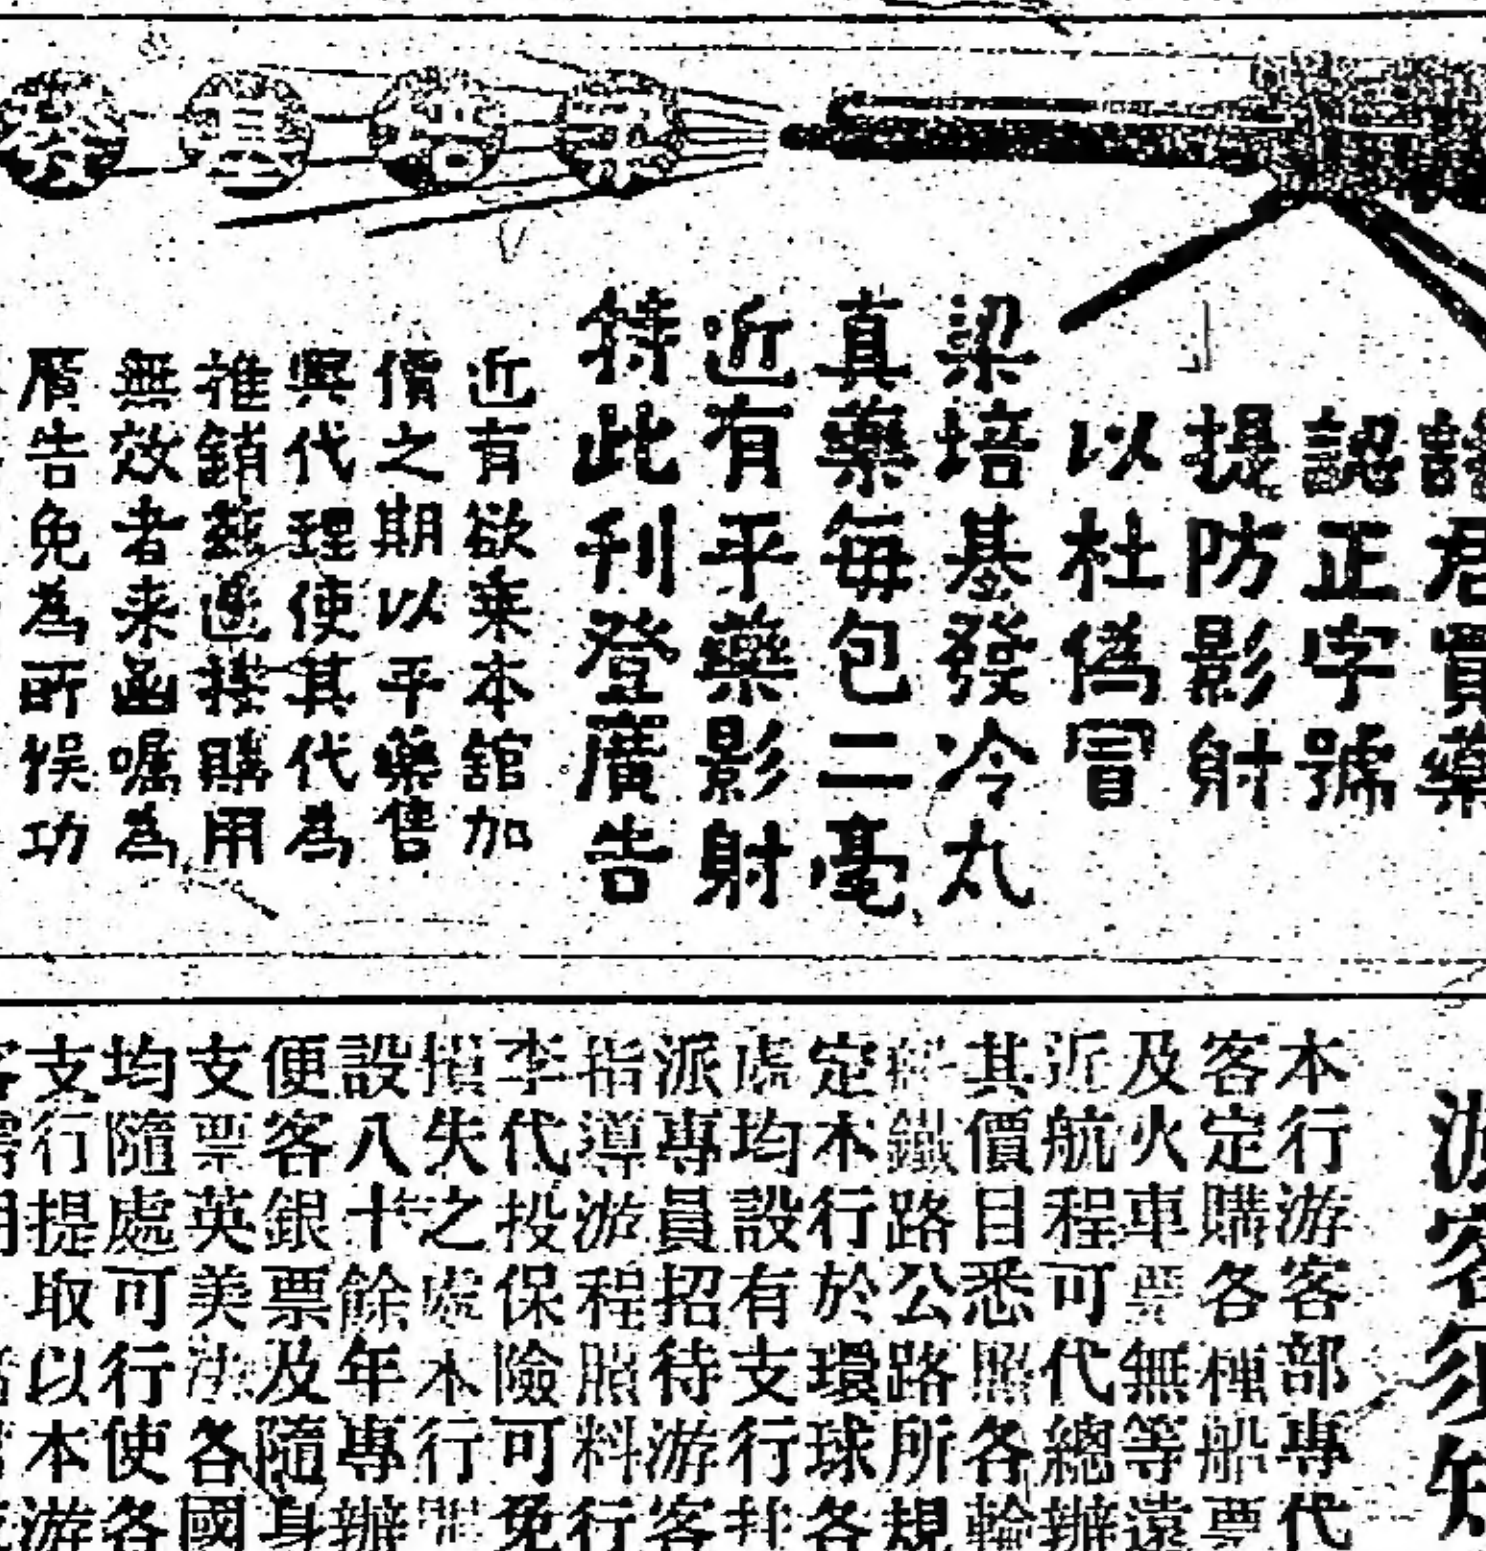 梁培基發
諸君買藥
認正字號
提防影射
以杜偽冒
梁培基發冷丸
真藥每包二毫
近有平藥影射
特此刊登廣告
近有欲乘本館加
價之期以平藥售
與代理使其代為
推銷茲遇接購用
無效者来函囑為
告免為所悞功
游客須知
本行游客部專代
客定購各種船票
及火車票無等遠
近航程可代總辦
其價目悉照各輪
船鐵路公路所規
定本行於環球各
處均設有支行
派專員招待游客
指導游程照料行
李代投保險可免
損失之處本行開
設八十餘年專辦
便客銀票及隨身
支票英美法各國
均隨處可行使各
支行提取以本游